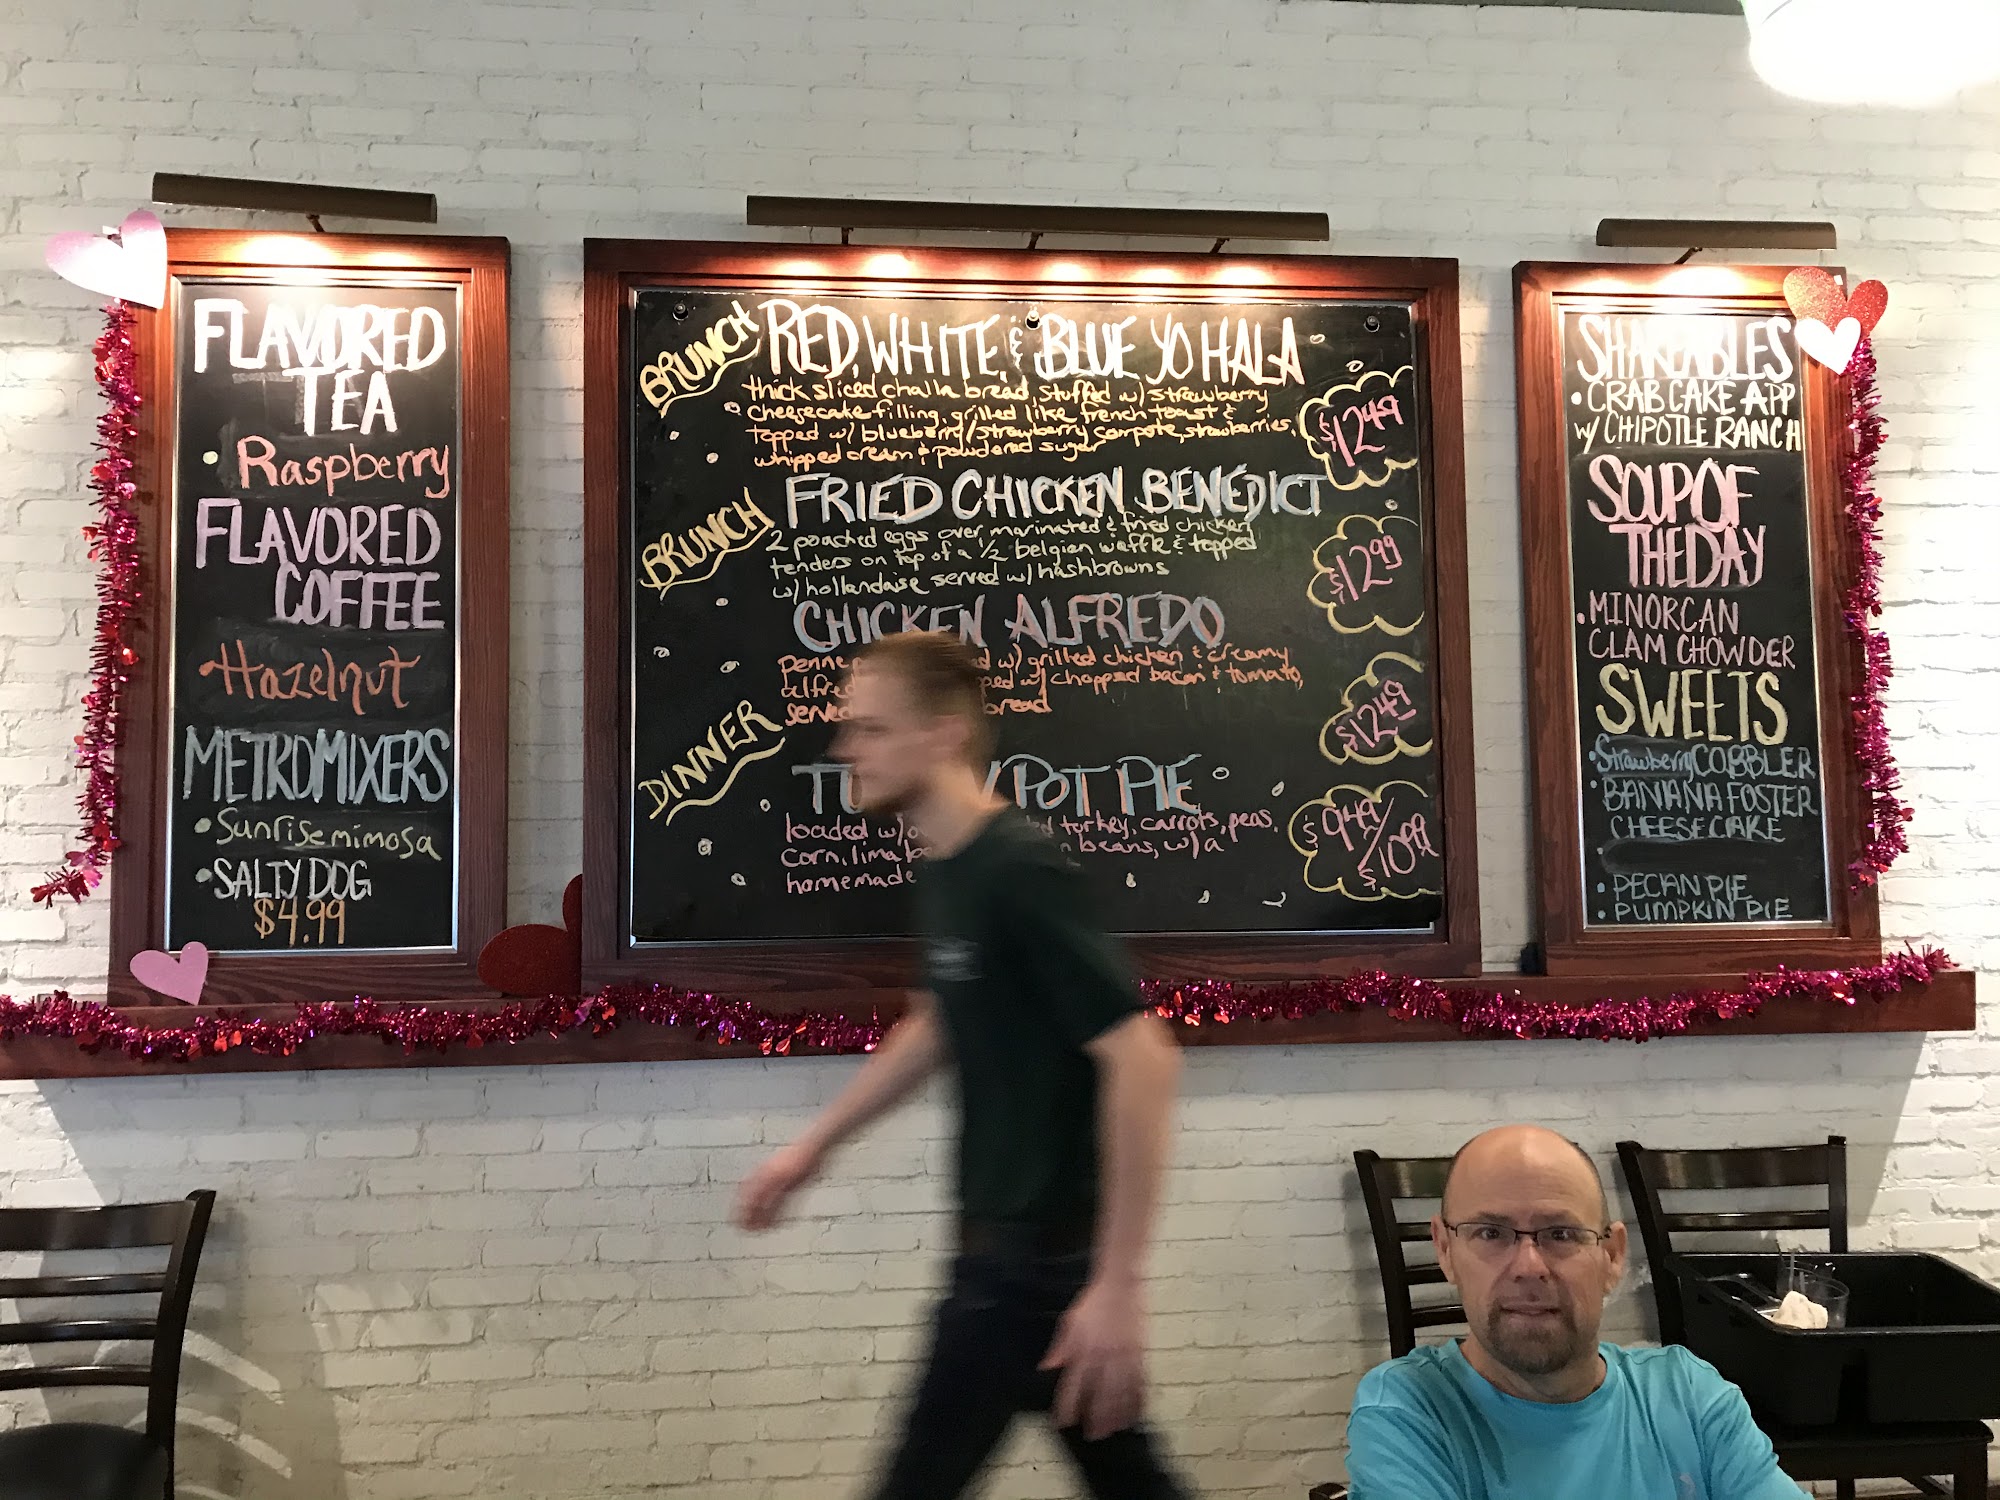 FLAVORED
TEA
• Raspberry
FLAVORED
COFFEE
• Hazelnut
METROMIXERS
• Sunrise mimosa
• SALTY DOG
$4.99
BRUNCH
RED, WHITE, & BLUE YO HALA
thick sliced challa bread, stuffed w/ strawberry
cheesecake filling, grilled like french toast &
topped w/ blueberry/strawberry compote, strawberries,
whipped cream & powdered sugar
$12.49
BRUNCH
FRIED CHICKEN BENEDICT
2 poached eggs over marinated & fried chicken
tenders on top of a 1/2 belgian waffle & topped
w/ hollandaise served w/ hashbrowns
$12.99
CHICKEN ALFREDO
penne w/ grilled chicken & creamy
w/ chopped bacon & tomato,
bread
$12.49
DINNER
POT PIE
loaded w/ turkey, carrots, peas,
corn, lima beans, w/ a
homemade
$9.49/$10.99
SHAREABLES
• CRAB CAKE APP
w/ CHIPOTLE RANCH
SOUP OF
THE DAY
• MINORCAN
CLAM CHOWDER
SWEETS
• Strawberry COBBLER
• BANANA FOSTER
CHEESECAKE
• PECAN PIE
• PUMPKIN PIE